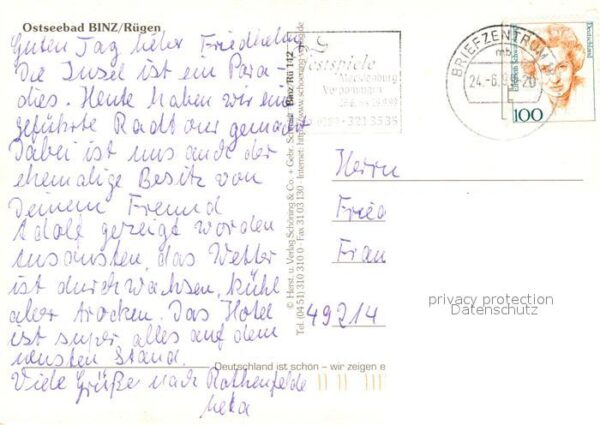 Ostseebad BINZ/Rügen
Guten Tag lieber Friedhelm,
Die Insel ist ein Para-
dies. Heute haben wir ein
geführte Radtour gemacht
Dabei ist uns auch der
ehemalige Besitz von
Deinem Freund
Adolf gezeigt worden
Ansonsten, das Wetter
ist durchwachsen, kühl
aber trocken. Das Hotel
ist super, alles auf dem
neusten Stand.
Viele Grüße nach Rothenfelde
© Herst. u. Verlag Schöning & Co. + Gebr. Schmidt Binz/Rü 1142
Tel. (04 51) 310 310 0 - Fax 31 03 130 - Internet: http://www.schoening-verlag.de
Festspiele
Mecklenburg
Vorpommern
321 35 35
BRIEFZENTRUM
mb
24.-6.
Deutschland
100
Herrn
Fried
Frau
49214
privacy protection
Datenschutz
Deutschland ist schön – wir zeigen e